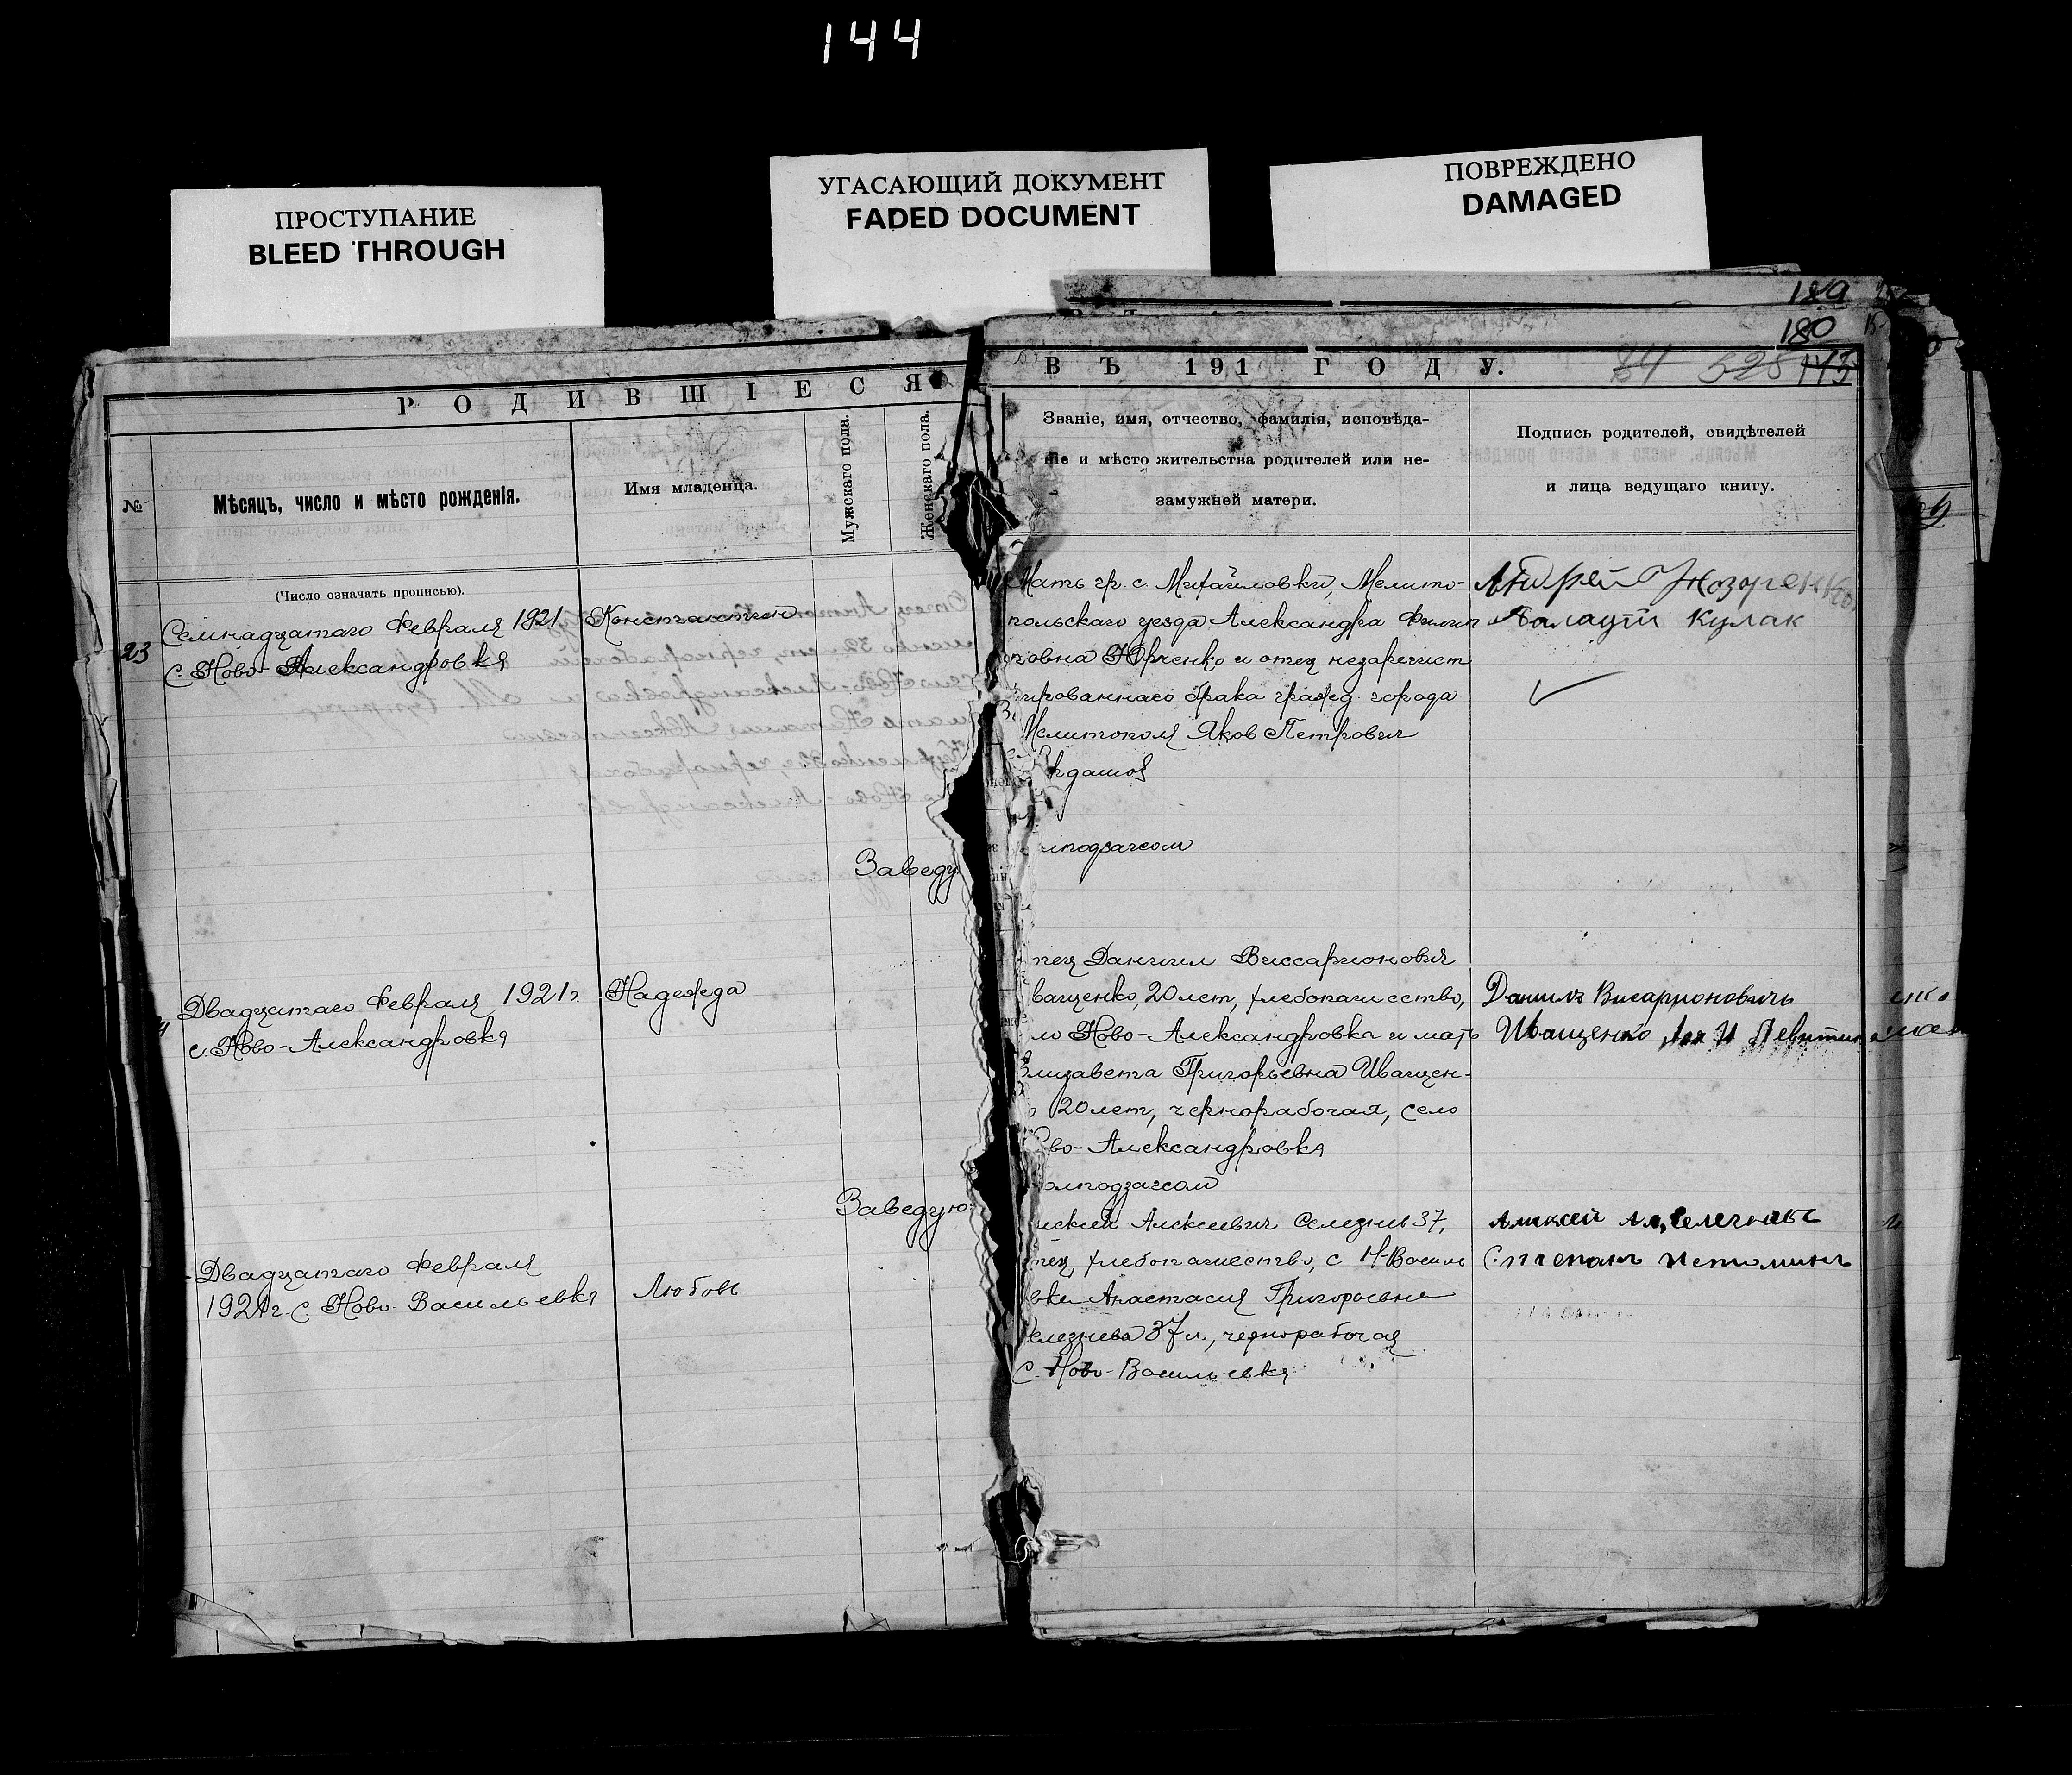 144
ПРОСТУПАНИЕ
BLEED THROUGH
УГАСАЮЩИЙ ДОКУМЕНТ
FADED DOCUMENT
ПОВРЕЖДЕНО
DAMAGED
180
РОДИВШІЕСЯ
ВЪ 191 ГОДУ.
№
Мѣсяцъ, число и мѣсто рожденія.
Имя младенца.
Мужскаго пола.
Женскаго пола.
Званіе, имя, отчество, фамилія, исповѣда-
ніе и мѣсто жительства родителей или не-
замужней матери.
Подпись родителей, свидѣтелей
и лица ведущаго книгу.
(Число означать прописью).
23
Семнадцатаго Февраля 1921
с. Ново-Александровка
Константин
Мать гр. с. Михайловки, Мелито-
польскаго уезда Александра
Юрченко и отец незарегист
рированнаго брака гражд. города
Мелитополя Яков Петрович
Андрей
Кулак
Заведу
мподзагсом
Двадцатаго Февраля 1921 г.
с. Ново-Александровка
Надежда
тец Даниил Виссарионович
ващенко, 20 лет, хлебопашество,
ло Ново-Александровка и мать
Елизавета Григорьевна Иващен-
20 лет, чернорабочая, село
ово-Александровка
Данилъ Висарионовичь
Иващенко
Заведую
омподзагсом
Двадцатаго Февраля
1921 г. с. Ново-Васильевка
Любовь
лексей Алексеевич Селезнев 37,
тец, хлебопашество, с Н-Василь
евка Анастасия Григорьевна
елезнева 37 л., чернорабочая
с. Ново-Васильевка
Алексей
Степанъ